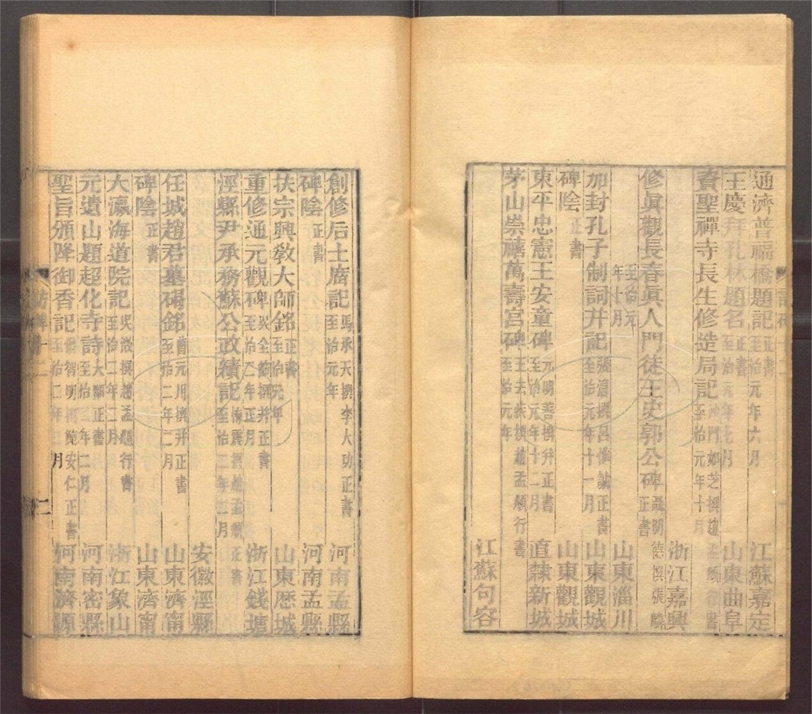 通濟普福橋題記 正書 至治元年六月 江蘇嘉定
王慶拜孔林題名 正書 至治元年七月 山東曲阜
資聖禪寺長生修造局記 至治元年十月
浙江嘉興
修眞觀長春眞人門徒王史郭公碑 正書
至治元年十月 山東淄川
加封孔子制詞并記 正書 至治元年十一月 山東觀城
碑陰 正書 山東觀城
東平忠憲王安童碑 元明善撰并正書 至治元年十二月 直隷新城
茅山崇禧萬壽宮碑 王去疾撰趙孟頫行書 至治元年 江蘇句容
創修后土廟記 馬承天撰李大功正書 至治元年 河南孟縣
碑陰 正書 河南孟縣
扶宗興敎大師銘 正書 至治元年 山東歷城
重修通元觀碑 吳全節撰并正書 至治二年正月 浙江錢塘
涇縣尹承務蘇公政績記 趙孟頫正書 至治二年二月
安徽涇縣
任城趙君墓碣銘 曹元用撰并正書 至治二年二月 山東濟甯
碑陰 正書 山東濟甯
大瀛海道院記 吳澂撰趙孟頫行書 至治二年二月 浙江象山
元遺山題超化寺詩 正書 至治二年二月 河南密縣
聖旨頒降御香記 安仁正書 至治二年 月 河南濟源
二